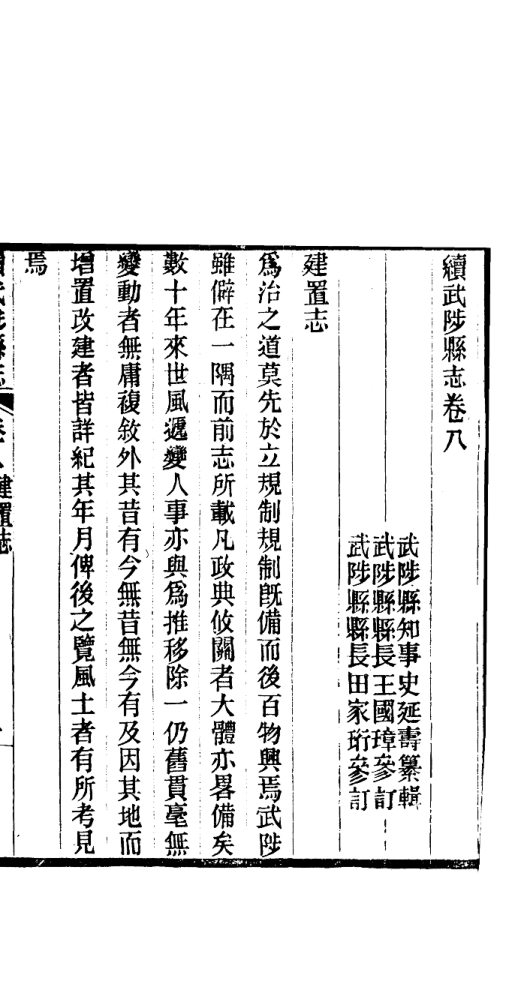 續武陟縣志卷八
武陟縣知事史延壽纂輯
武陟縣縣長王國璋參訂
武陟縣縣長田家珩參訂
建置志
爲治之道莫先於立規制規制旣備而後百物興焉武陟
雖僻在一隅而前志所載凡政典攸關者大體亦畧備矣
數十年來世風遞變人事亦與爲推移除一仍舊貫毫無
變動者無庸複敘外其昔有今無昔無今有及因其地而
增置改建者皆詳紀其年月俾後之覽風土者有所考見
焉
續武陟縣志 卷八 建置志